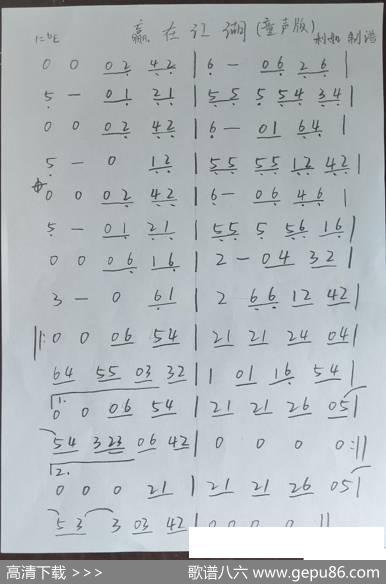 1=bE 赢在江湖(童声版) 制谱
0 0 02 42 | 6 - 06 26 |
5 - 01 21 | 55 5 54 34 |
0 0 02 42 | 6 - 01 64 |
5 - 0 12 | 55 55 12 42 |
0 0 02 42 | 6 - 06 46 |
5 - 01 21 | 55 5 56 16 |
0 0 06 16 | 2 - 04 32 |
3 - 0 61 | 2 66 12 42 |
||: 0 0 06 54 | 21 21 24 04 |
64 55 03 32 | 1 01 16 54 |
1.
0 0 06 54 | 21 21 26 05 |
54 323 06 42 | 0 0 0 0 :||
2.
0 0 0 21 | 21 21 26 05 |
53 3 03 42 | 0 0 0 0 ||
高清下载 >>> 歌谱八六 www.gepu86.com